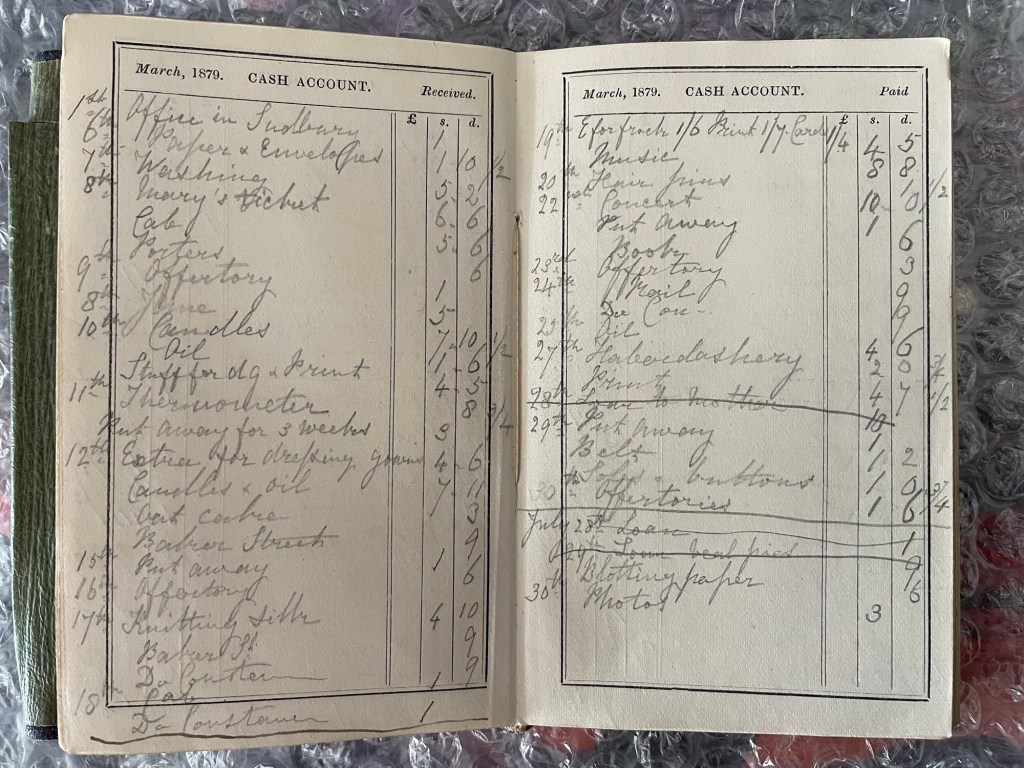 March, 1879. CASH ACCOUNT. Received.
£ s. d.
1st Office in Sudbury 1
6th Paper & Envelopes 1 10 1/2
7th Washing 5 2
8th Mary's Ticket 6 6
Cab 5 6
Porters 6
9th Offertory 1
8th 5
10th Candles 7 10 1/2
Oil 1 6
Stuff for dg & Print 4 5
11th Thermometer 8 3/4
Put away for 3 weeks 3
12th Extra for dressing gown 4 6
Candles & oil 7 11
Oat cake 3
Baker Street 9
15th Put away 1 6
16th Offertory
17th Knitting silk 4 10
Baker St. 9
Do 9
18th Cab 1
Do 1
March, 1879. CASH ACCOUNT. Paid
£ s. d.
19th E for frock 1/6 Print 1/7 Cards 1/4 4 5
Music 8 8
20th Hair pins 1 1/2
22nd Concert 10 0
Put away 1
Books 6
23rd Offertory 3
24th 9
Do Con 9
25th Oil 6
27th Haberdashery 4 0 3/4
Print 2 7 1/2
28th Loan to Mother 10
29th Put away 1
Belt 1 2
& buttons 1 0 3/4
30th Offertories 1 6
July 28th Loan 1
29th Loan veal pies 9
Blotting paper 6
30th Photos 3